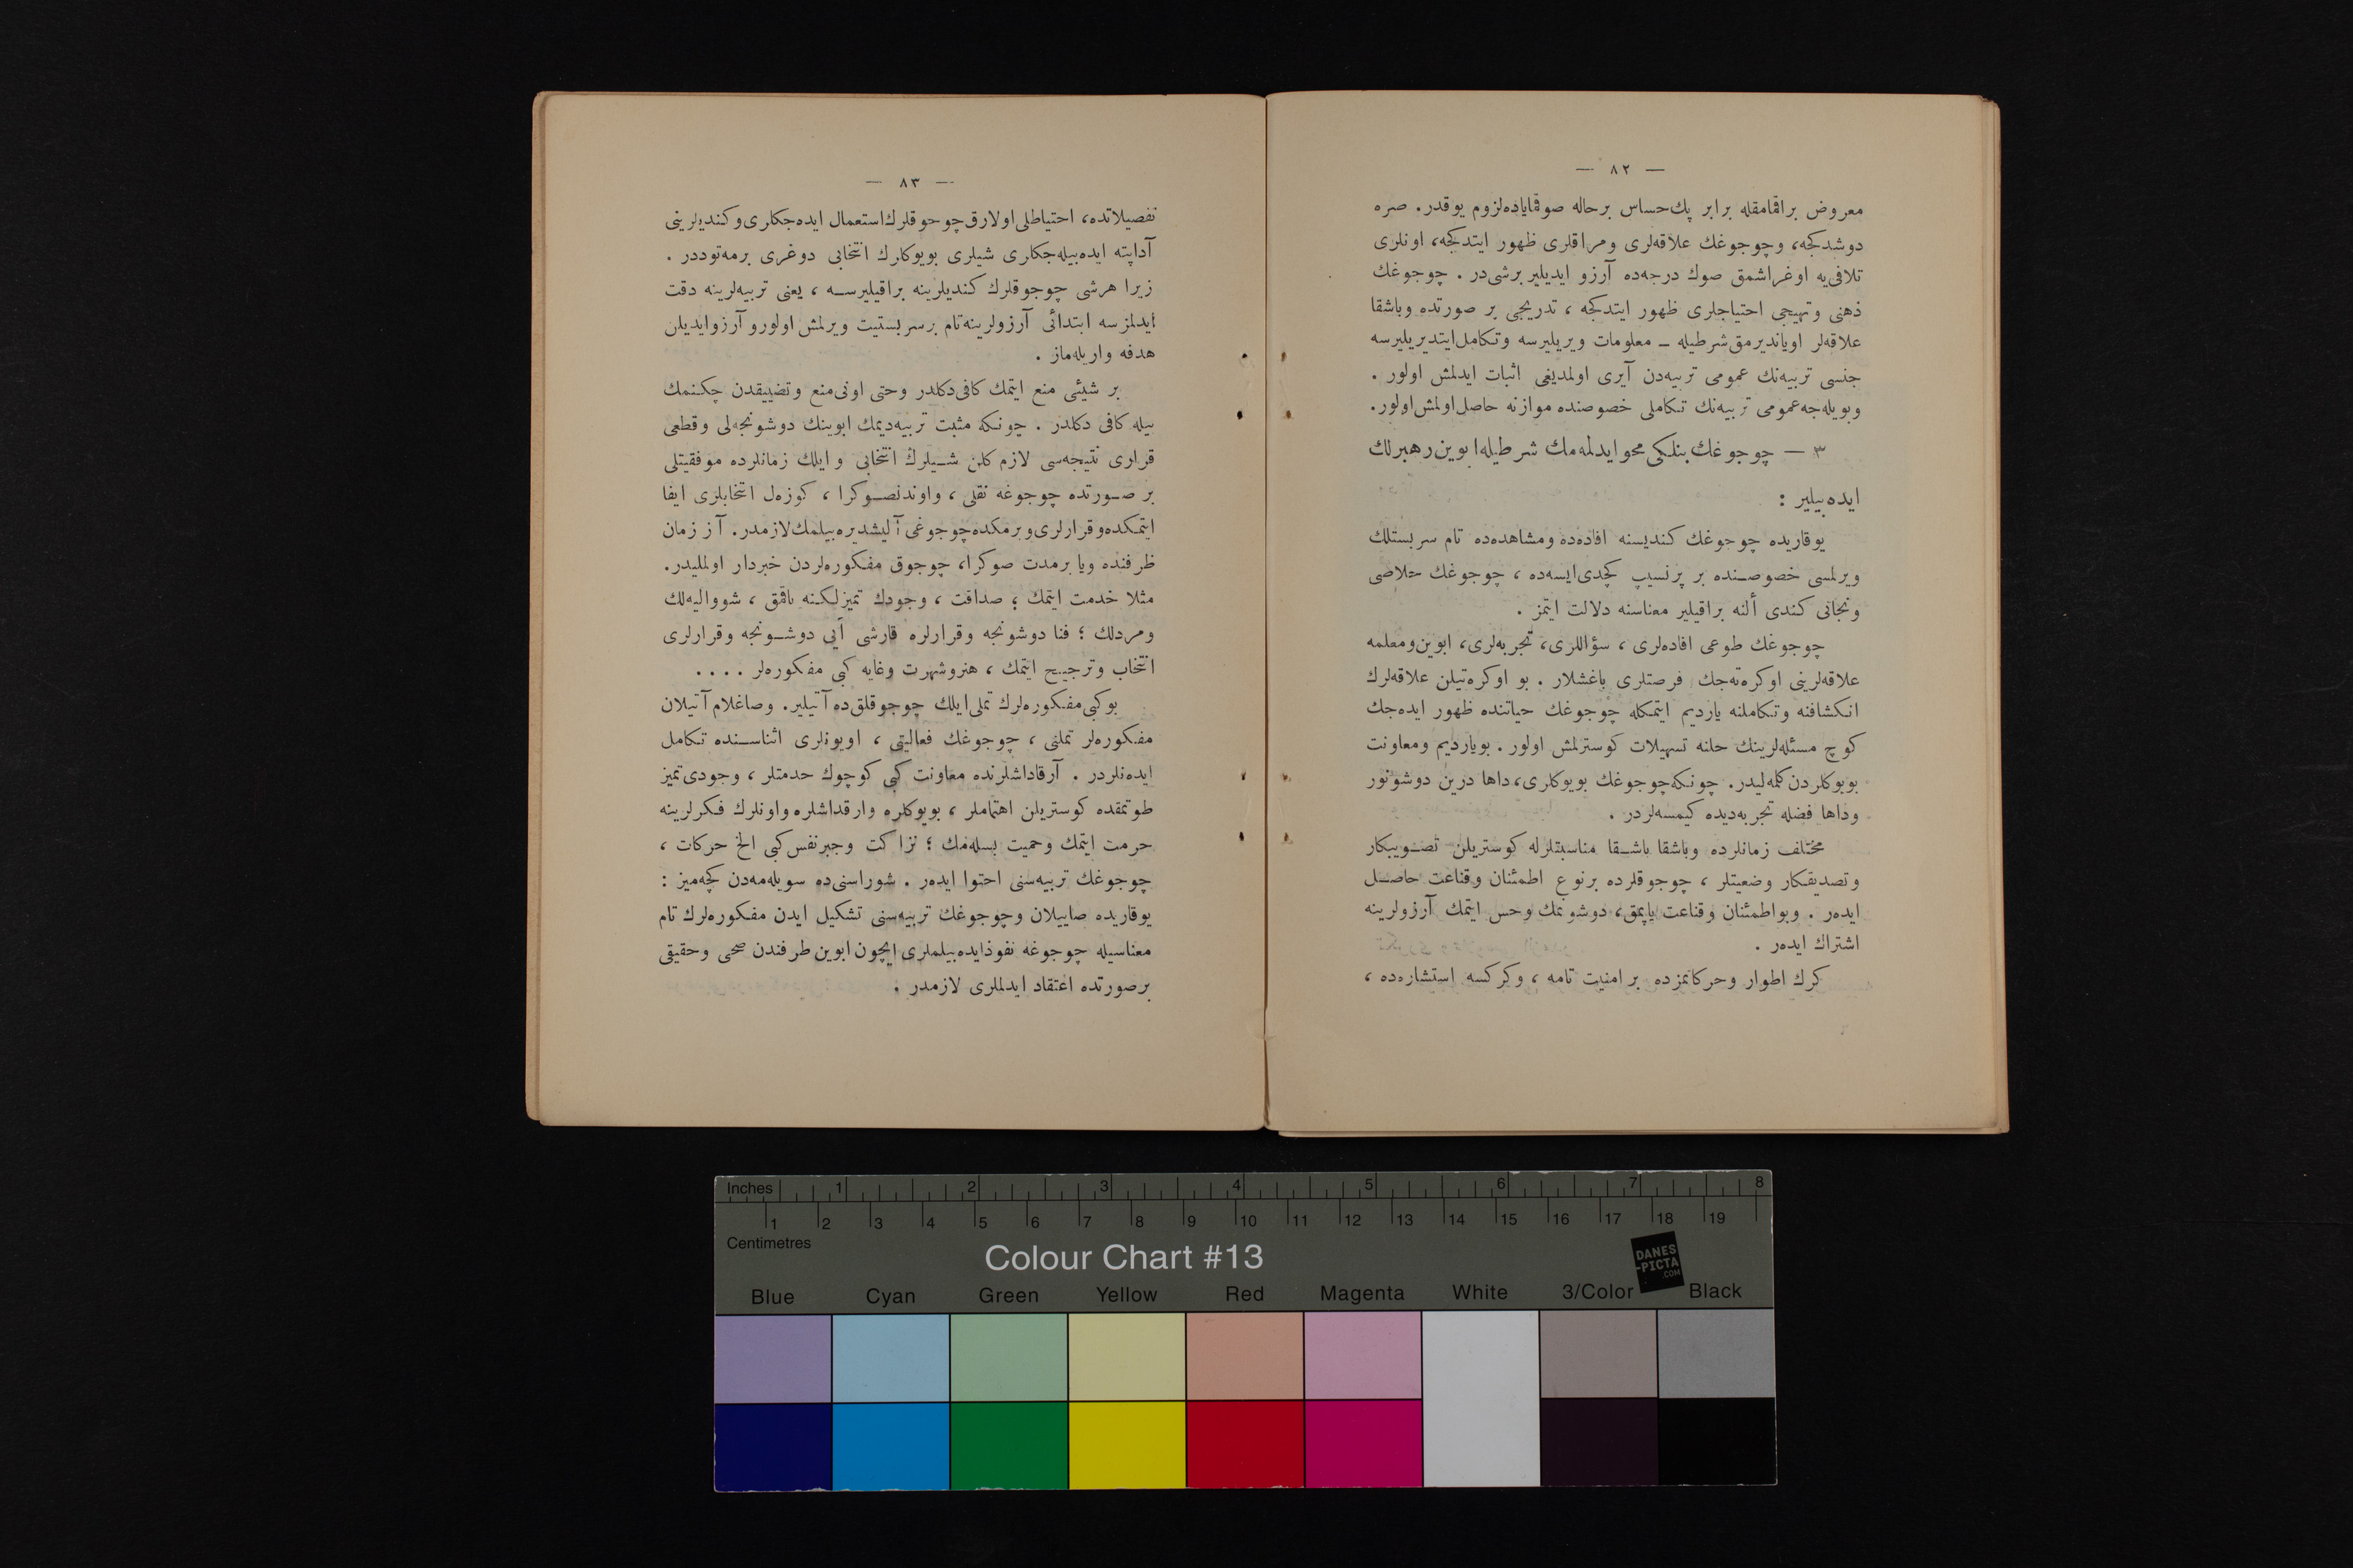 — ٨٢ —
معروض براقمامقله برابر پك حساس برحاله صوقمایاده لزوم یوقدر. صره
دوشدکجه، وچوجوغك علاقه‌لری ومراقلری ظهور ایتدکجه، اونلری
تلافی‌یه اوغراشمق صوك درجه‌ده آرزو ایدیلیر برشی‌در . چوجوغك
ذهنی وتهیجی احتیاجلری ظهور ایتدکجه ، تدریجی بر صورتده وباشقا
علاقه‌لر اویاندیرمق شرطیله ــ معلومات ویریلیرسه وتکامل ایتدیریلیرسه
جنسی تربیه‌نك عمومی تربیه‌دن آیری اولمدیغی اثبات ایدلمش اولور .
وبویله‌جه عمومی تربیه‌نك تکاملی خصوصنده موازنه حاصل اولمش اولور.
٣ — چوجوغك بنلکی محو ایدلمه‌مك شرطیله ابوین رهبرلك
ایده‌بیلیر :
یوقاریده چوجوغك کندیسنه افاده‌ده ومشاهده‌ده تام سربستلك
ویرلمسی خصوصنده بر پرنسیپ کچدی ایسه‌ده ، چوجوغك خلاصی
ونجاتی کندی ألنه براقیلیر معناسنه دلالت ایتمز .
چوجوغك طوعی افاده‌لری ، سؤاللری، تجربه‌لری، ابوین ومعلمه
علاقه‌لرینی اوکره‌ته‌جك فرصتلری باغشلار . بو اوکره‌تیلن علاقه‌لرك
انکشافنه وتکاملنه یاردیم ایتمکله چوجوغك حیاتنده ظهور ایده‌جك
کوچ مسئله‌لرینك حلنه تسهیلات کوسترلمش اولور . بویاردیم ومعاونت
بویوکلردن کلمه‌لیدر. چونکه چوجوغك بویوکلری، داها درین دوشونور
وداها فضله تجربه‌دیده کیمسه‌لردر .
مختلف زمانلرده وباشقا باشقا مناسبتلرله کوستریلن تصویبکار
وتصدیقکار وضعیتلر ، چوجوقلرده برنوع اطمئنان وقناعت حاصل
ایده‌ر . وبواطمئنان وقناعت یاپمق، دوشونمك وحس ایتمك آرزولرینه
اشتراك ایده‌ر .
کرك اطوار وحرکاتمزده بر امنیت تامه ، وکرکسه استشاره‌ده ،
— ٨٣ —
تفصیلاتده، احتیاطلی اولارق چوجوقلرك استعمال ایده‌جکلری وکندیلرینی
آداپته ایده‌بیله‌جکلری شیلری بویوکلرك انتخابی دوغری برمه‌توددر .
زیرا هرشی چوجوقلرك کندیلرینه براقیلیرسه ، یعنی تربیه‌لرینه دقت
ایدلمزسه ابتدائی آرزولرینه تام برسربستیت ویرلمش اولورو آرزو ایدیلن
هدفه واریله‌ماز .
بر شیئی منع ایتمك کافی دکلدر وحتی اونی منع وتضییقدن چکنمك
بیله کافی دکلدر . چونکه مثبت تربیه دیمك ابوینك دوشونجه‌لی وقطعی
قراری نتیجه‌سی لازم کلن شیلرك انتخابی و ایلك زمانلرده موفقیتلی
بر صورتده چوجوغه نقلی ، واوندنصوکرا ، کوزه‌ل انتخابلری ایفا
ایتمکده وقرارلری ویرمکده چوجوغی آلیشدیره‌بیلمك لازمدر. آز زمان
ظرفنده ویا برمدت صوکرا، چوجوق مفکوره‌لردن خبردار اولملیدر.
مثلا خدمت ایتمك ؛ صداقت ، وجودك تمیزلکنه باقمق ، شووالیه‌لك
ومردلك ؛ فنا دوشونجه وقرارلره قارشی أیی دوشونجه وقرارلری
انتخاب وترجیح ایتمك ، هنر وشهرت وغایه کبی مفکوره‌لر ....
بوکبی مفکوره‌لرك تملی ایلك چوجوقلق‌ده آتیلیر. وصاغلام آتیلان
مفکوره‌لر تملنی ، چوجوغك فعالیتی ، اویونلری اثناسنده تکامل
ایده‌نلردر . آرقاداشلرنده معاونت کبی کوچوك خدمتلر ، وجودی تمیز
طوتمقده کوستریلن اهتماملر ، بویوکلره وارقداشلره واونلرك فکرلرینه
حرمت ایتمك وحمیت بسله‌مك ؛ نزاکت وجبرنفس کبی الخ حرکات ،
چوجوغك تربیه‌سنی احتوا ایده‌ر . شوراسنی‌ده سویله‌مه‌دن کچه‌میز :
یوقاریده صاییلان وچوجوغك تربیه‌سنی تشکیل ایدن مفکوره‌لرك تام
معناسیله چوجوغه نفوذ ایده‌بیلملری ایچون ابوین طرفندن صحی وحقیقی
برصورتده اعتقاد ایدلملری لازمدر .
Inches 1 2 3 4 5 6 7 8
1 2 3 4 5 6 7 8 9 10 11 12 13 14 15 16 17 18 19
Centimetres
Colour Chart #13
DANES
-PICTA
.COM
Blue Cyan Green Yellow Red Magenta White 3/Color Black